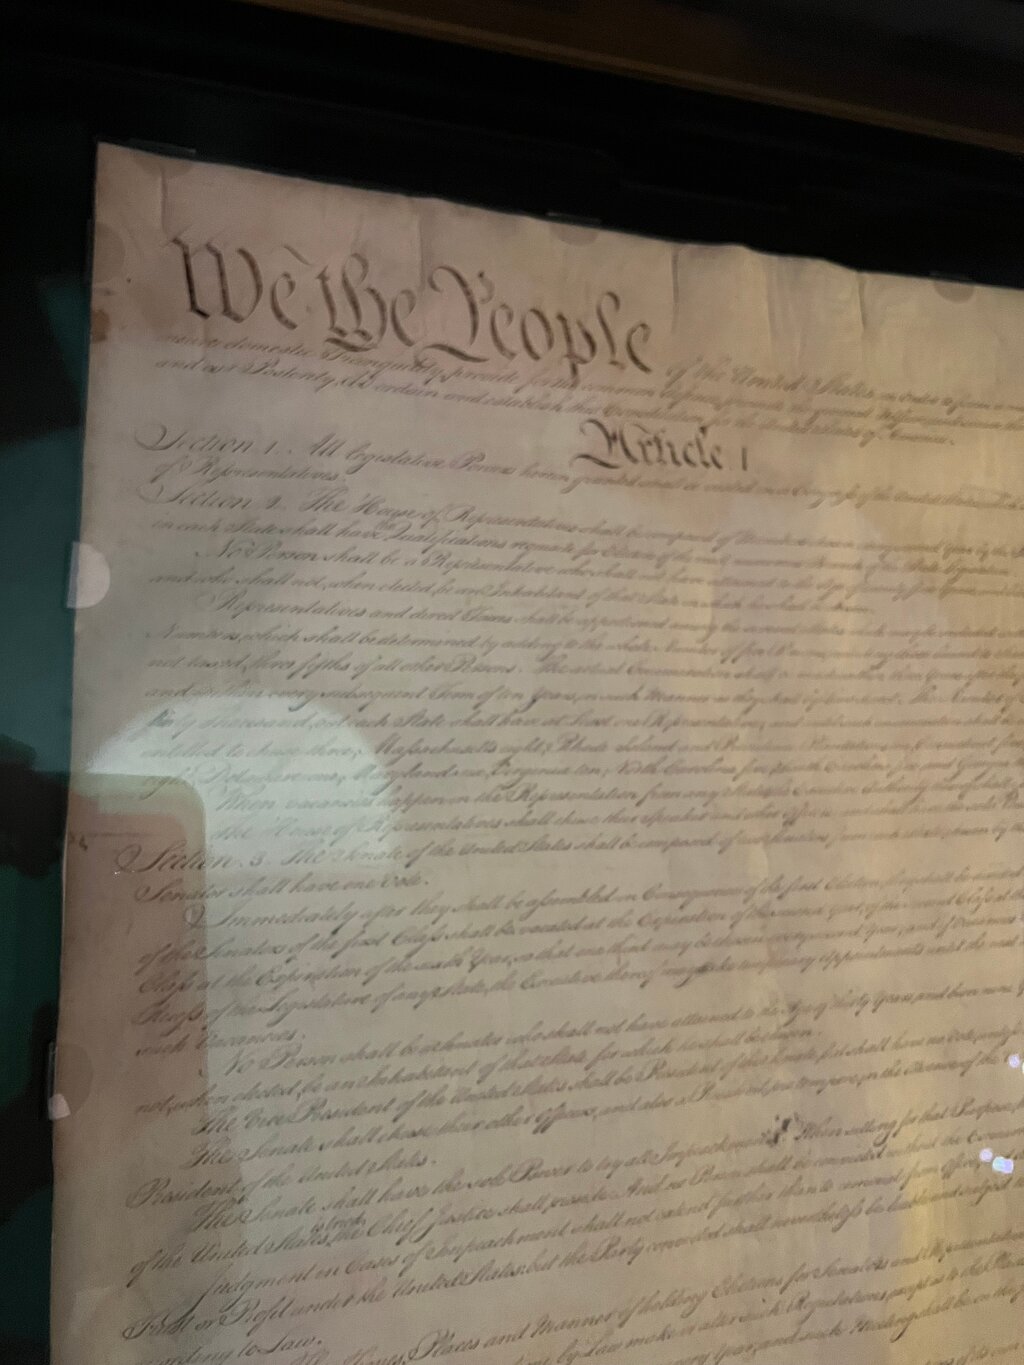 We the People of the United States, in order to form a
insure domestic Tranquility, provide for the common defence, promote the general Welfare, and
and our Posterity, do ordain and establish this Constitution for the United States of America.
Article I
Section 1. All legislative Powers herein granted shall be vested in a Congress of the United States
of Representatives.
Section 2. The House of Representatives shall be composed of Members chosen every second Year by the
in each State shall have the Qualifications requisite for Electors of the most numerous Branch of the State Legislature.
No Person shall be a Representative who shall not have attained to the Age of twenty five Years, and
and who shall not, when elected, be an Inhabitant of that State in which he shall be chosen.
Representatives and direct Taxes shall be apportioned among the several States which may be included
Numbers, which shall be determined by adding to the whole Number of free Persons, including those bound to
not taxed, three fifths of all other Persons. The actual Enumeration shall be made within three Years after the
and within every subsequent Term of ten Years, in such Manner as they shall by Law direct. The Number of
thirty Thousand, but each State shall have at Least one Representative; and until such enumeration shall be
entitled to chuse three, Massachusetts eight, Rhode Island and Providence Plantations one, Connecticut
eight, Delaware one, Maryland six, Virginia ten, North Carolina five, South Carolina five, and Georgia
When vacancies happen in the Representation from any State, the Executive Authority thereof shall
The House of Representatives shall chuse their Speaker and other Officers; and shall have the sole
Section. 3. The Senate of the United States shall be composed of two Senators from each State, chosen by the
Senator shall have one Vote.
Immediately after they shall be assembled in Consequence of the first Election, they shall be divided
of the Senators of the first Class shall be vacated at the Expiration of the second Year, of the second Class at the
Class at the Expiration of the sixth Year, so that one third may be chosen every second Year; and if
Recess of the Legislature of any State, the Executive thereof may make temporary Appointments until the next
such Vacancies.
No Person shall be a Senator who shall not have attained to the Age of thirty Years, and been nine
not, when elected, be an Inhabitant of that State for which he shall be chosen.
The Vice President of the United States shall be President of the Senate, but shall have no Vote, unless
The Senate shall chuse their other Officers, and also a President pro tempore, in the Absence of the
President of the United States.
The Senate shall have the sole Power to try all Impeachments. When sitting for that Purpose,
of the United States is tried, the Chief Justice shall preside: And no Person shall be convicted without the
Judgment in Cases of Impeachment shall not extend further than to removal from Office, and
Trust or Profit under the United States: but the Party convicted shall nevertheless be liable and subject to
according to Law.
Times, Places and Manner of holding Elections for Senators and Representatives
by Law make or alter such Regulations, except as to the
every Year, and such Meeting shall be on the